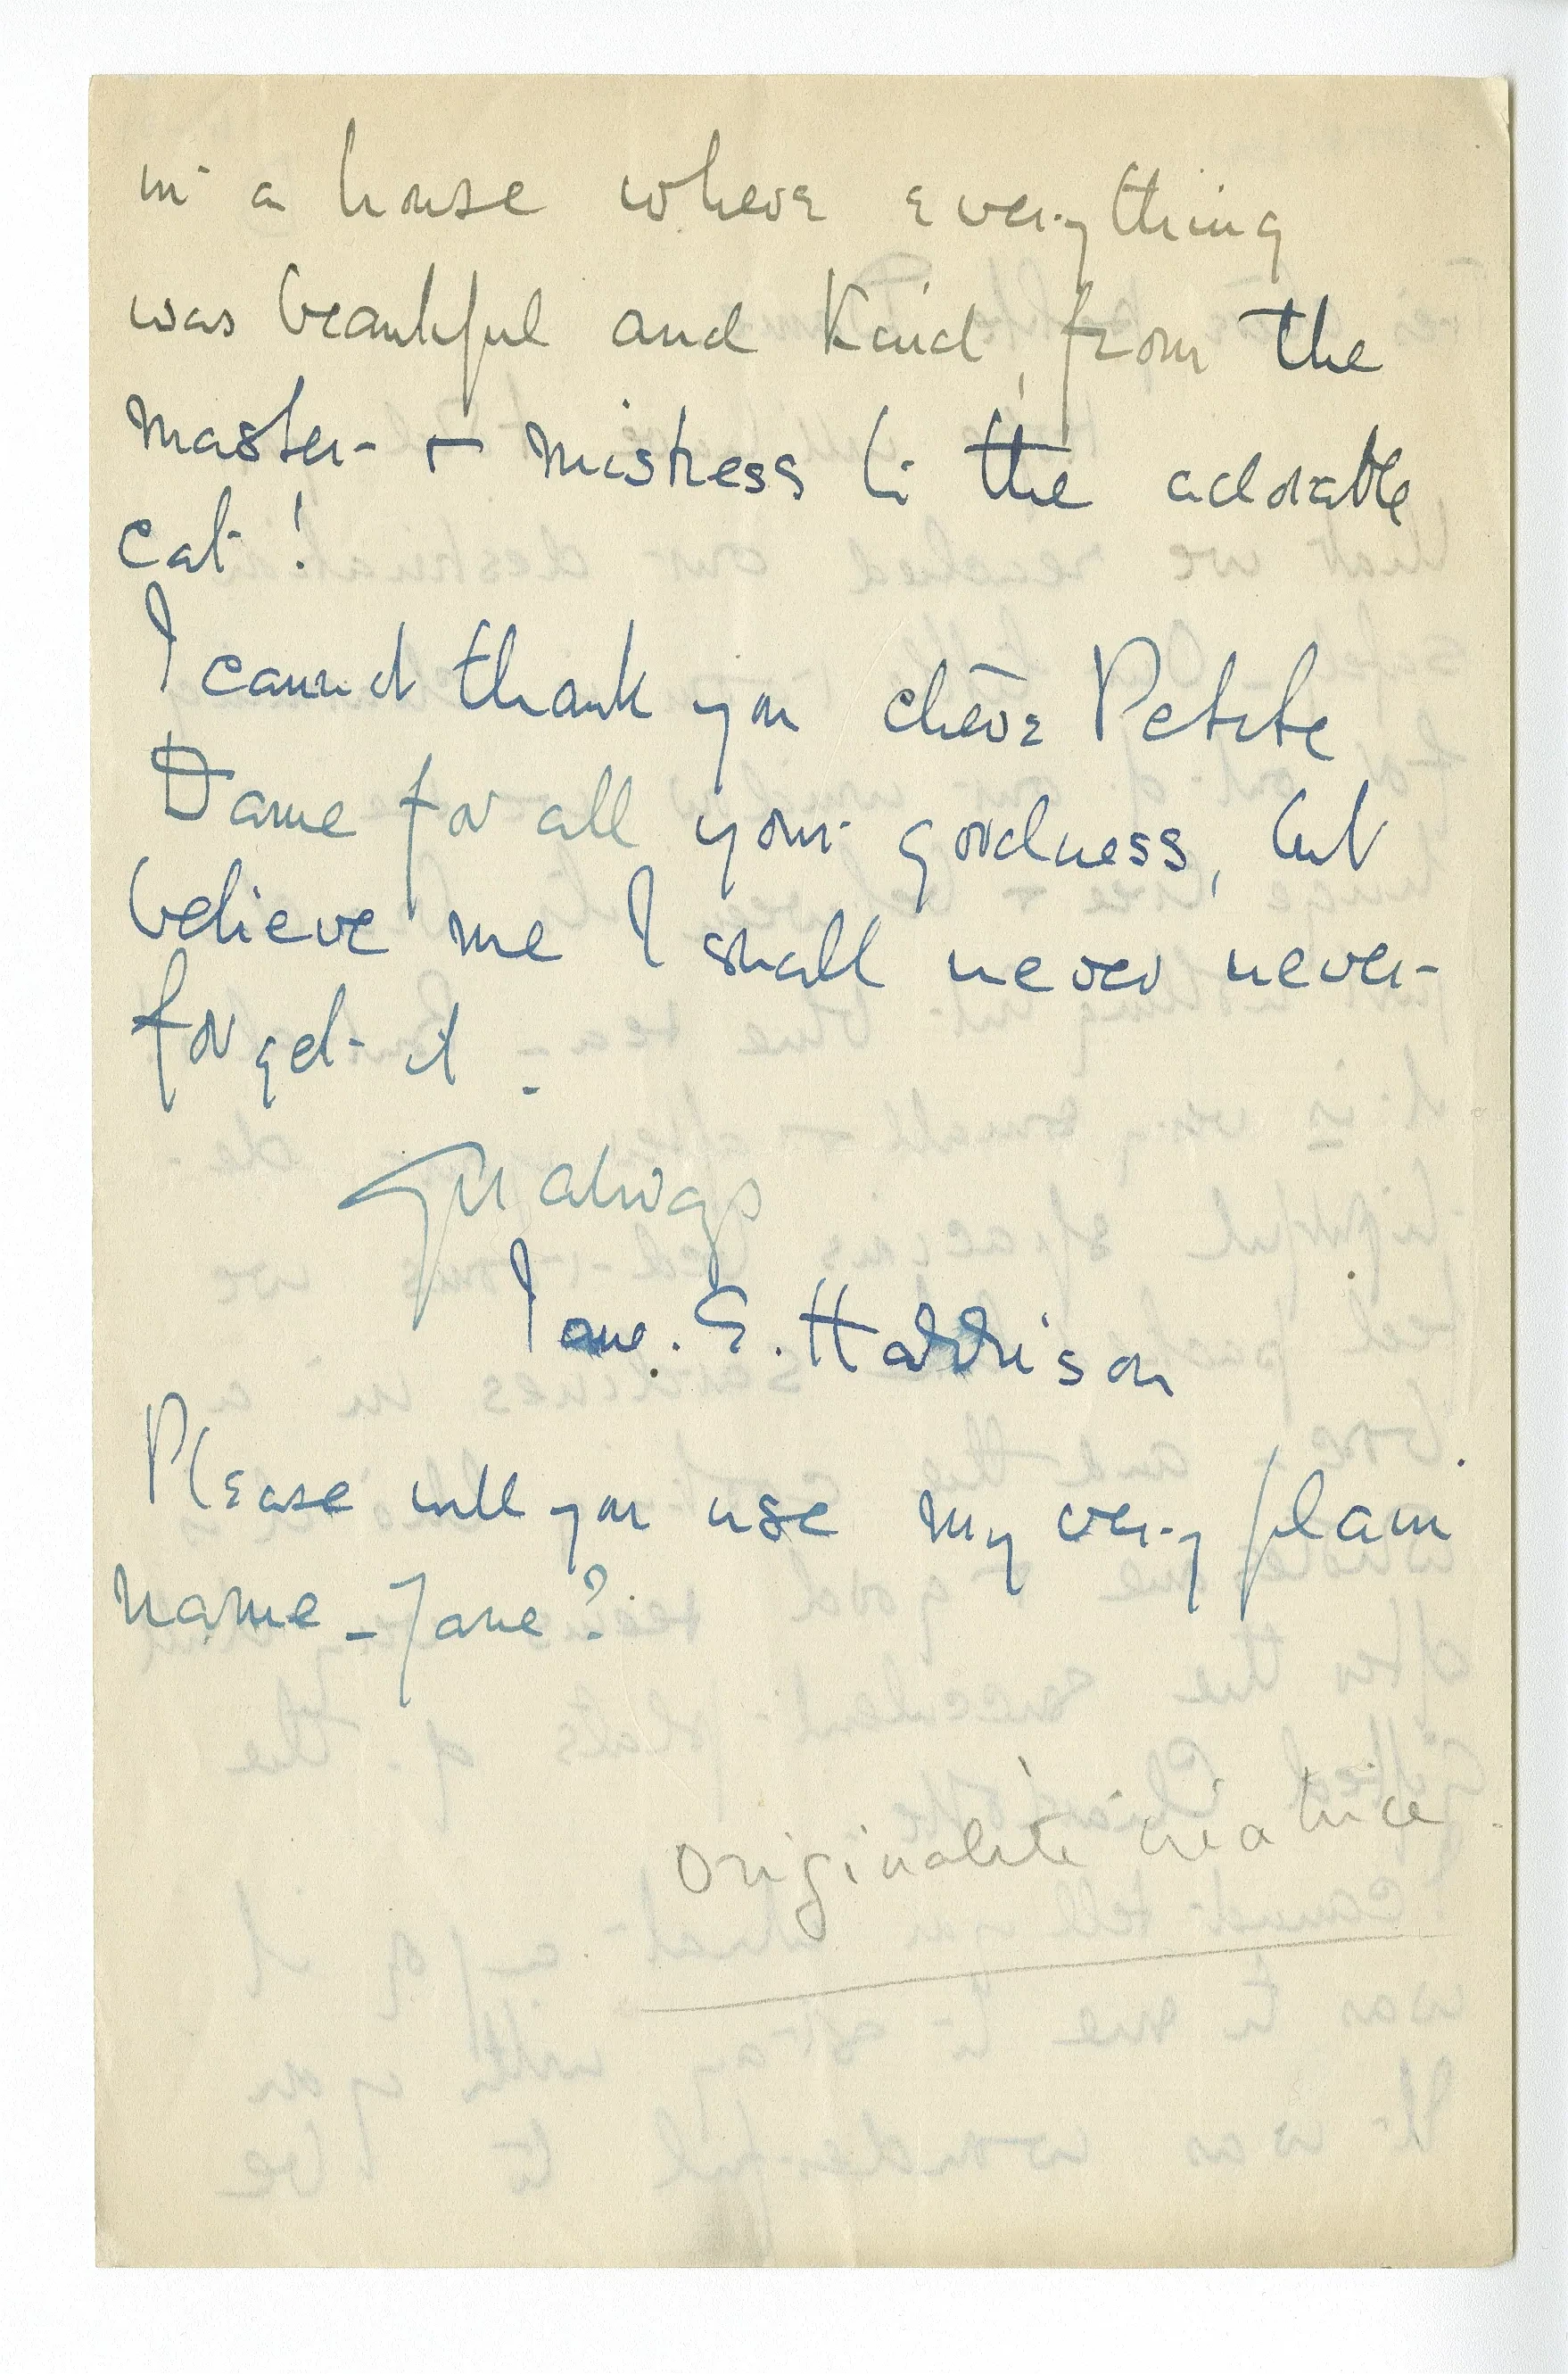 in a house where everything
was beautiful and kind, from the
master & mistress to the adorable
cat!
I cannot thank you chère Petite
Dame for all your goodness, but
believe me I shall never never
forget it –
Yrs always
Jane. E. Harrison
Please will you use my very plain
name – Jane?
originalité créatrice